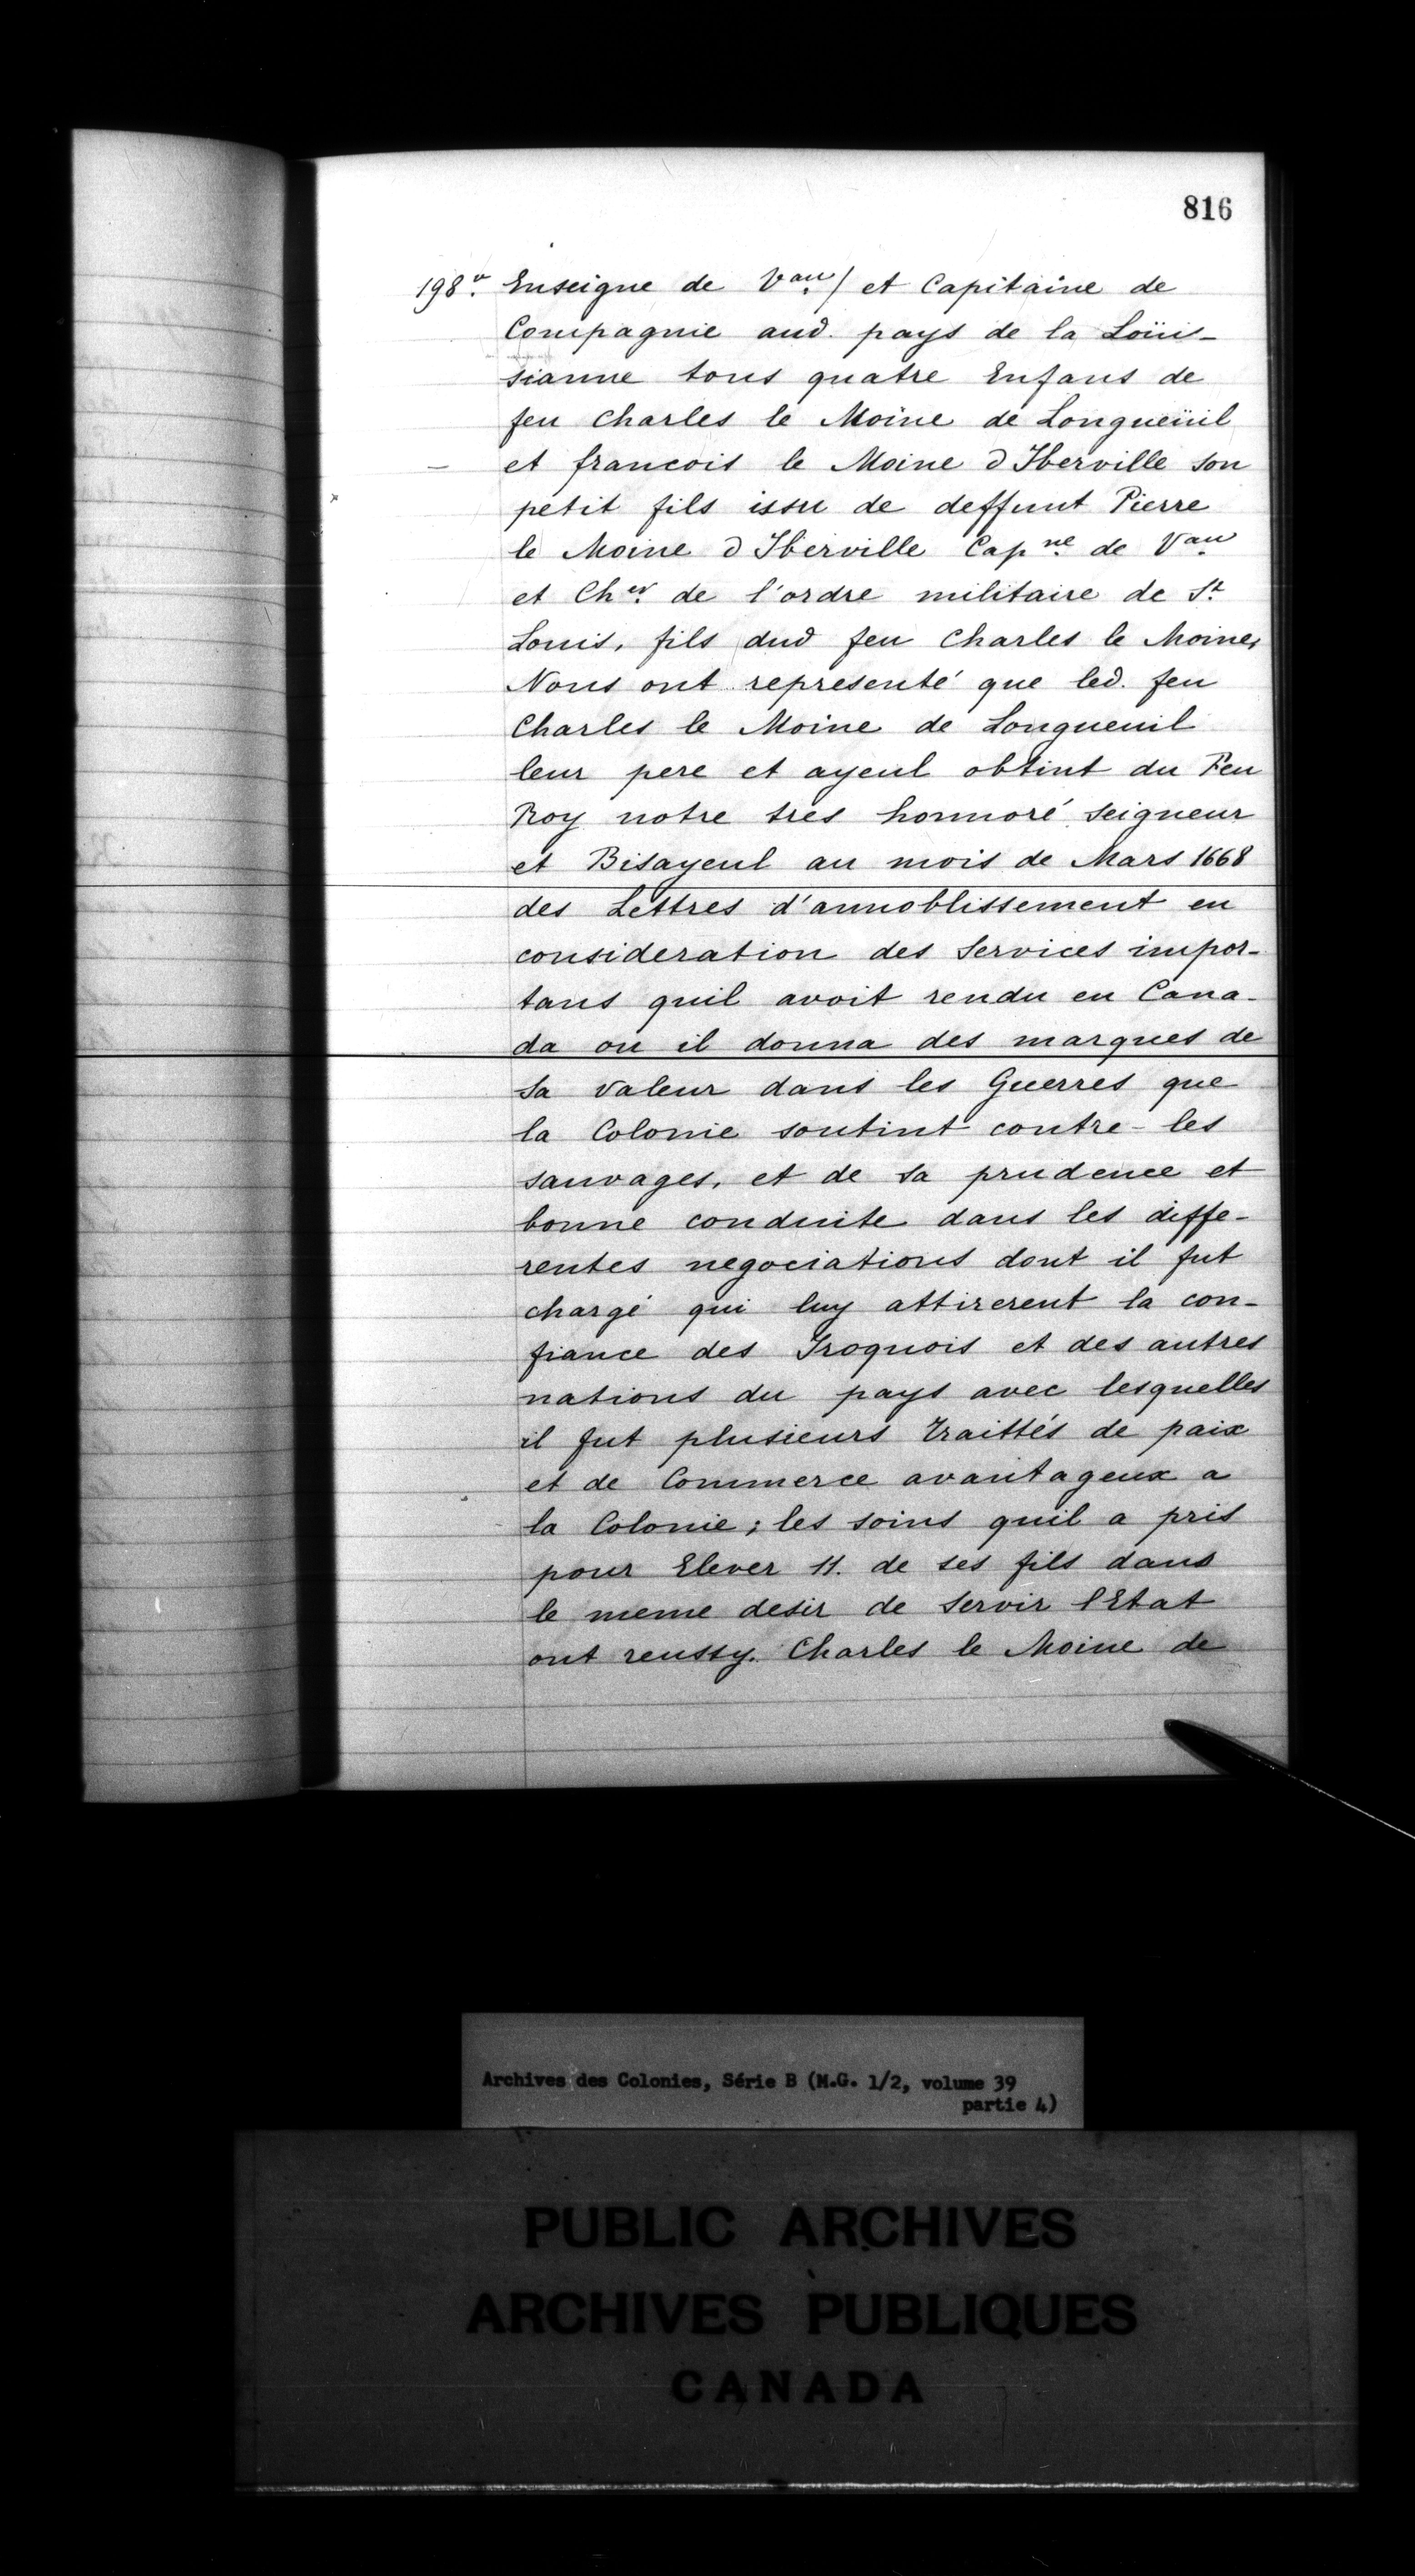 816
198v. Enseigne de Vau/ et Capitaine de
Compagnie aud. pays de la Loüis-
sianne tous quatre Enfans de
feu Charles le Moine de Longueüil
et francois le Moine d Iberville son
petit fils issu de deffunt Pierre
le Moine d Iberville Capne. de Vau
et Cher. de l'ordre militaire de St
Louis, fils dud feu Charles le Moine,
Nous ont representé que led. feu
Charles le Moine de Longueuil
leur pere et ayeul obtint du Feu
Roy notre tres honnoré Seigneur
et Bisayeul au mois de Mars 1668
des Lettres d'annoblissement en
consideration des Services impor-
tans quil avoit rendu en Cana-
da ou il donna des marques de
Sa valeur dans les Guerres que
la Colonie soutint contre les
sauvages, et de Sa prudence et
bonne conduite dans les diffe-
rentes negociations dont il fut
chargé qui luy attirerent la con-
fiance des Iroquois et des autres
nations du pays avec lesquelles
il fut plusieurs Traittés de paix
et de Commerce avantageux a
la Colonie; les soins quil a pris
pour Elever 11. de ses fils dans
le meme desir de Servir l'Etat
ont reussy. Charles le Moine de
Archives des Colonies, Série B (M.G. 1/2, volume 39
partie 4)
PUBLIC ARCHIVES
ARCHIVES PUBLIQUES
CANADA